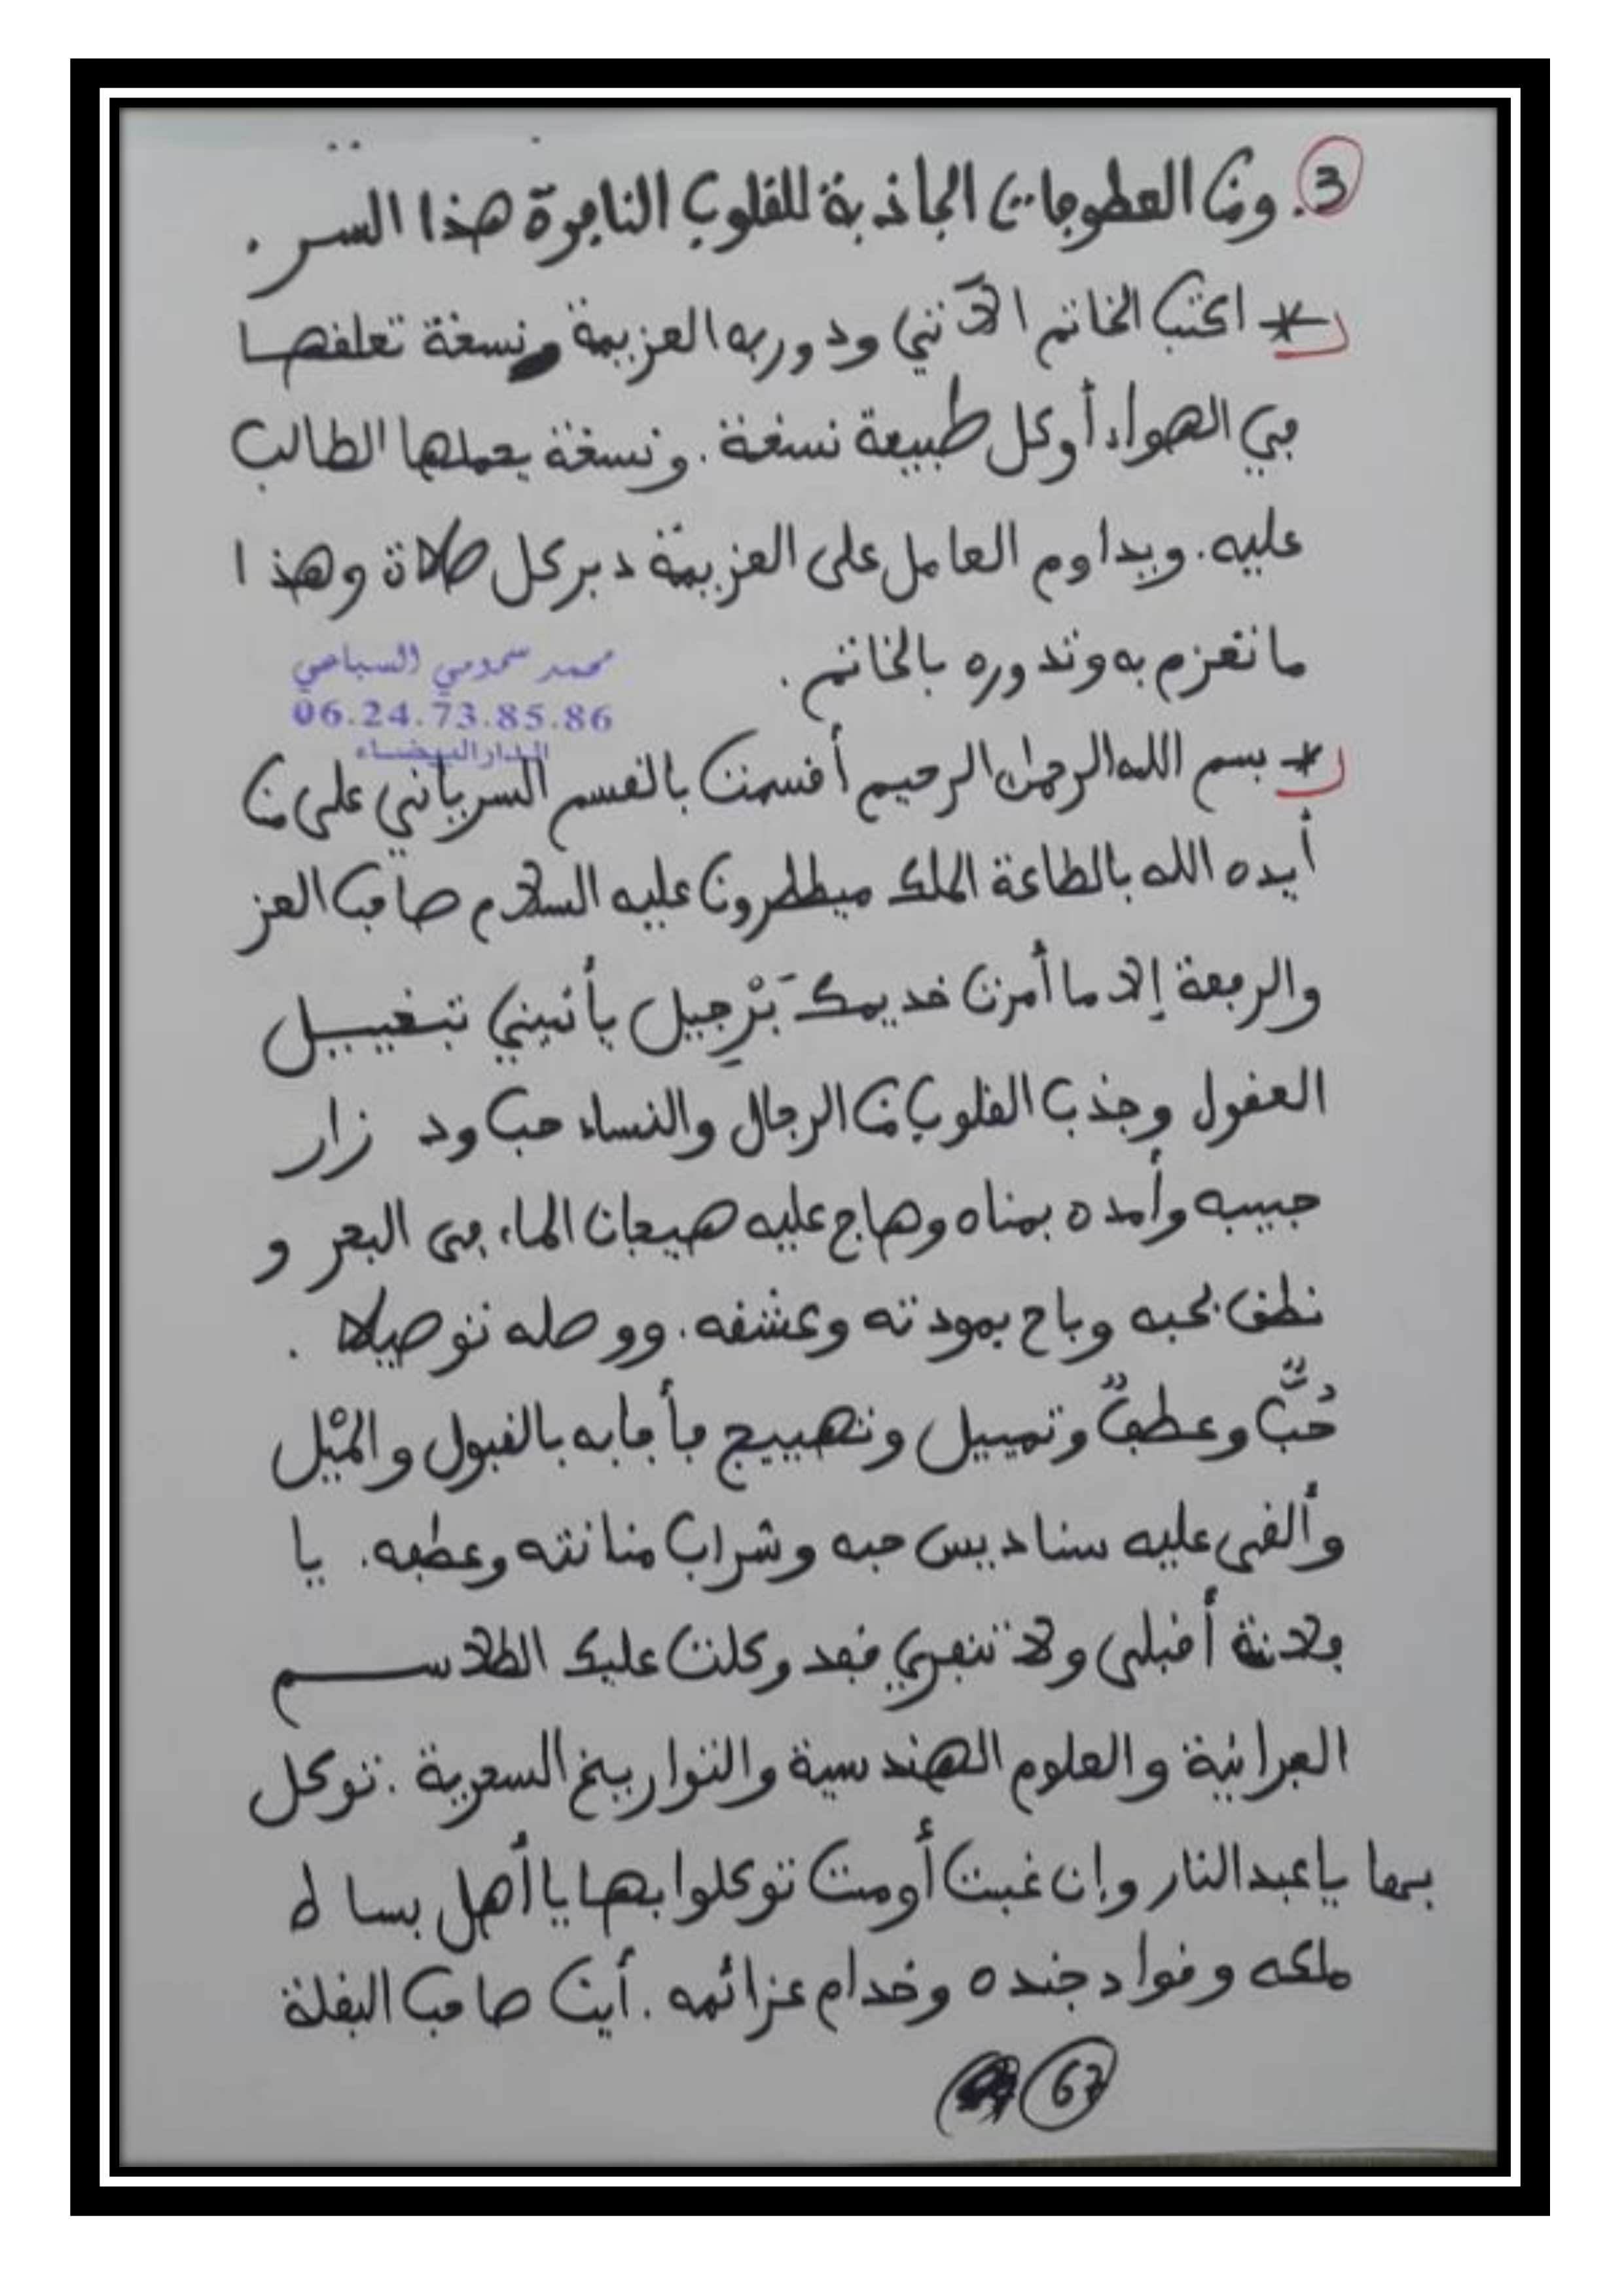 3. ومن العطوفات الجاذبة للقلوب النافرة هذا السر.
* اكتب الخاتم الآتي ودور به العزيمة ونسخة تعلقها
في الهواء أوكل طبيعة نسخة. ونسخة يحملها الطالب
عليه. ويداوم العامل على العزيمة دبر كل صلاة وهذا
ما تعزم به وتدوره بالخاتم.
محمد سمومي السباعي
06.24.73.85.86
الدار البيضاء
* بسم الله الرحمن الرحيم أقسمت بالقسم السرياني على من
أيده الله بالطاعة الملك ميططرون عليه السلام صاحب العز
والرفعة إلا ما أمرت خديمك بَرْجِيل يأتيني بتخييل
العقول وجذب القلوب من الرجال والنساء حب ود زار
حبيبه وأمده بمناه وهاج عليه هيجان الماء في البحر و
نطق بحبه وباح بمودته وعشقه. ووصله توصيلا.
حُبٌّ وعطفٌ وتمييل وتهييج فأجابه بالقبول والمَيْل
وألقى عليه سناديس حبه وشراب منانته وعطفه. يا
فلانة أقبلي ولا تنفري فقد وكلت عليك الطلاسم
العبرانية والعلوم الهندسية والتواريخ السحرية. توكل
بها يا عبد النار وإن غبت أومت توكلوا بها يا أهل بساط
ملكه وقواد جنده وخدام عزائمه. أين صاحب البغلة
67